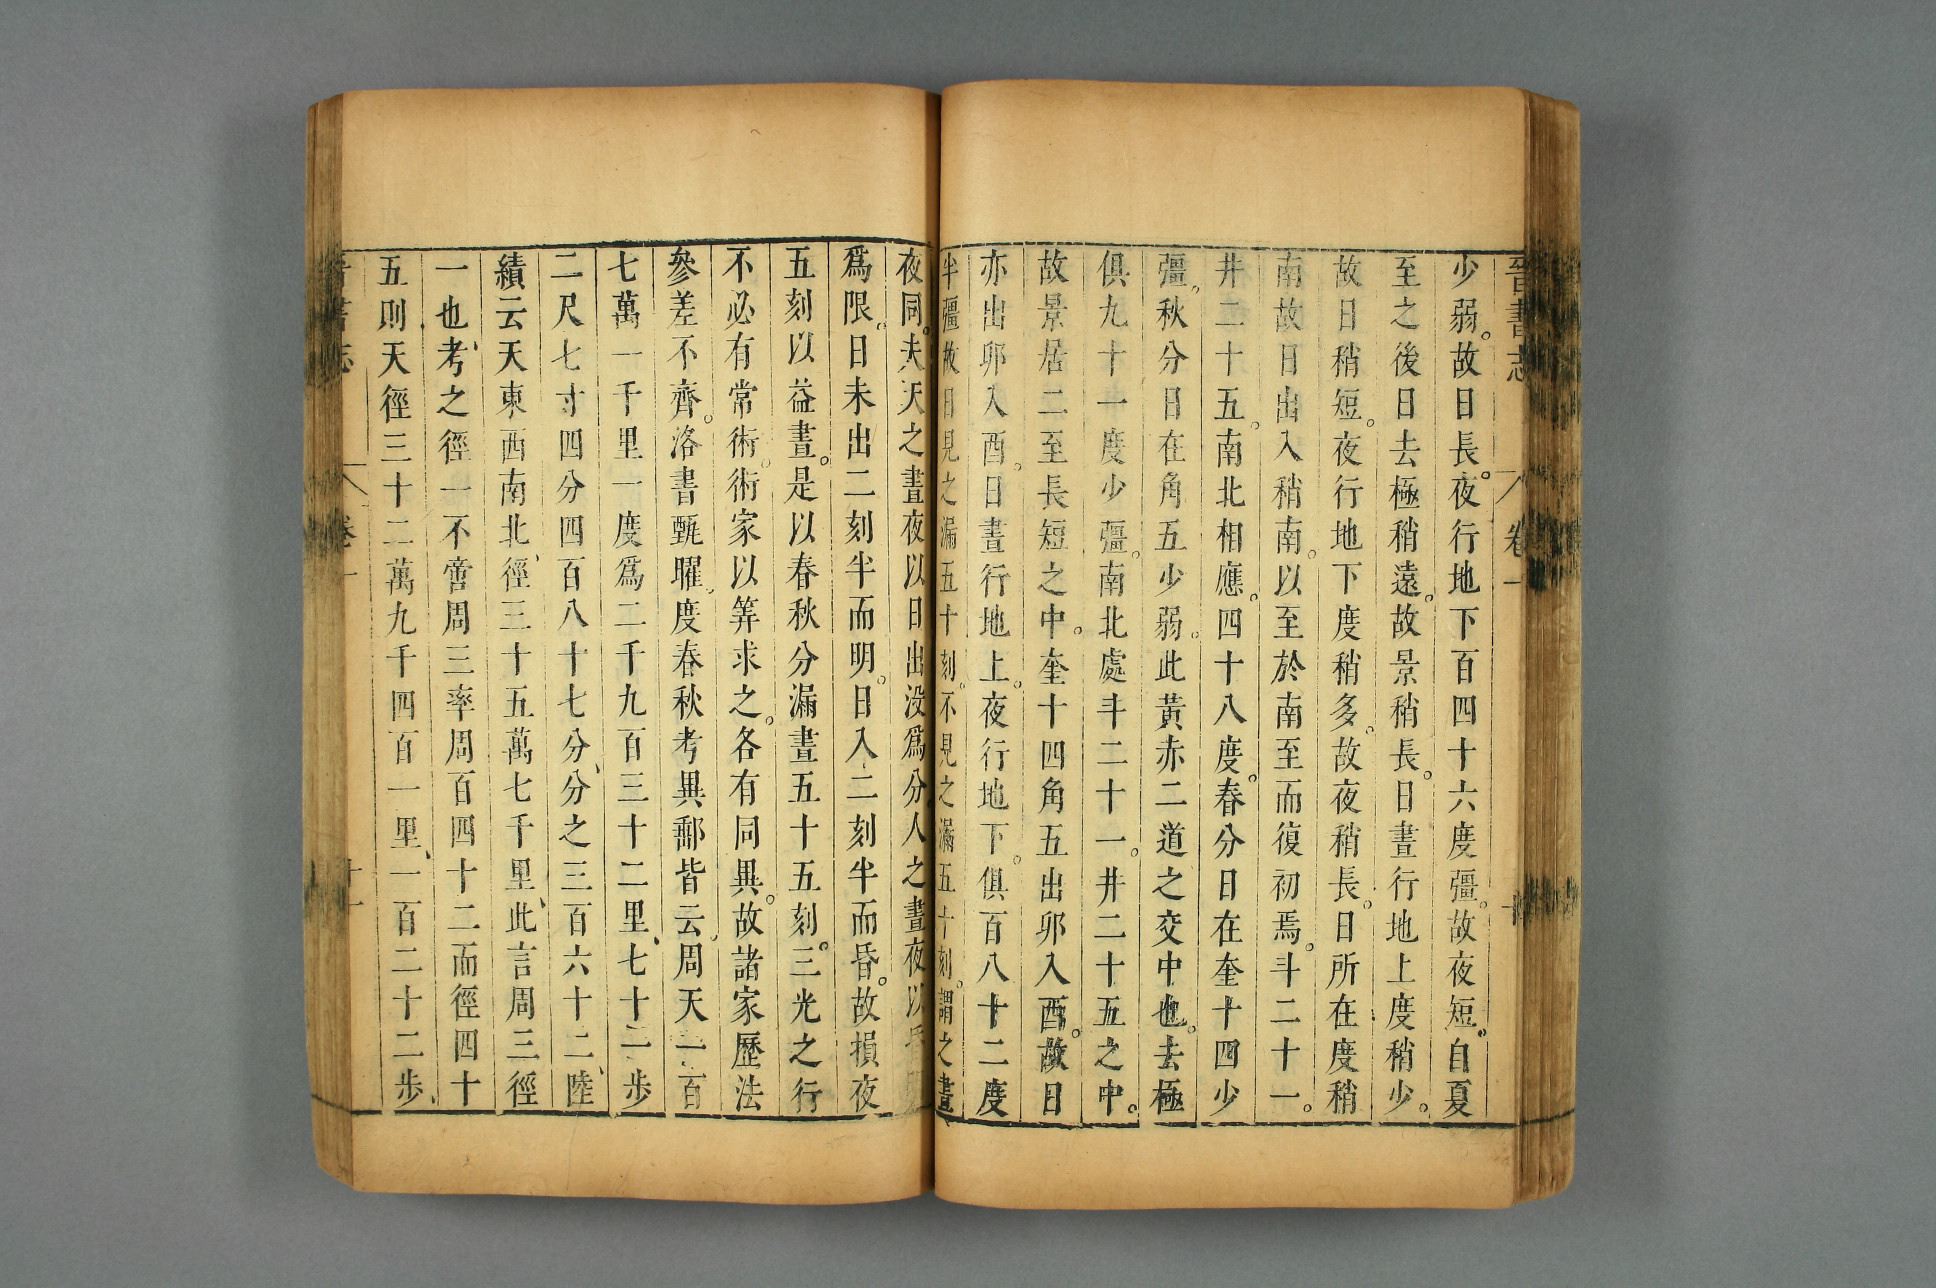 晉書志
卷一
少弱。故日長。夜行地下百四十六度彊。故夜短。自夏
至之後日去極稍遠。故景稍長。日晝行地上度稍少。
故日稍短。夜行地下度稍多。故夜稍長。日所在度稍
南故日出入稍南。以至於南至而復初焉。斗二十一。
井二十五。南北相應。四十八度。春分日在奎十四少
彊。秋分日在角五少弱。此黃赤二道之交中也。去極
俱九十一度少彊。南北處斗二十一。井二十五之中。
故景居二至長短之中。奎十四角五出卯入酉。故日
亦出卯入酉。日晝行地上。夜行地下。俱百八十二度
半彊故日見之漏五十刻。不見之漏五十刻。謂之晝
夜同。夫天之晝夜以日出没爲分。人之晝夜以昏明
爲限。日未出二刻半而明。日入二刻半而昏。故損夜
五刻以益晝。是以春秋分漏晝五十五刻。三光之行
不必有常術。術家以筭求之。各有同異。故諸家歷法
參差不齊。洛書甄曜度春秋考異郵皆云。周天一百
七萬一千里一度爲二千九百三十二里、七十二步
二尺七寸四分四百八十七分、分之三百六十二、陸
績云天東西南北、徑三十五萬七千里、此言周三徑
一也、考之徑一不啻周三率周百四十二而徑四十
五則天徑三十二萬九千四百一里、一百二十二步、
晉書志
卷一
十一